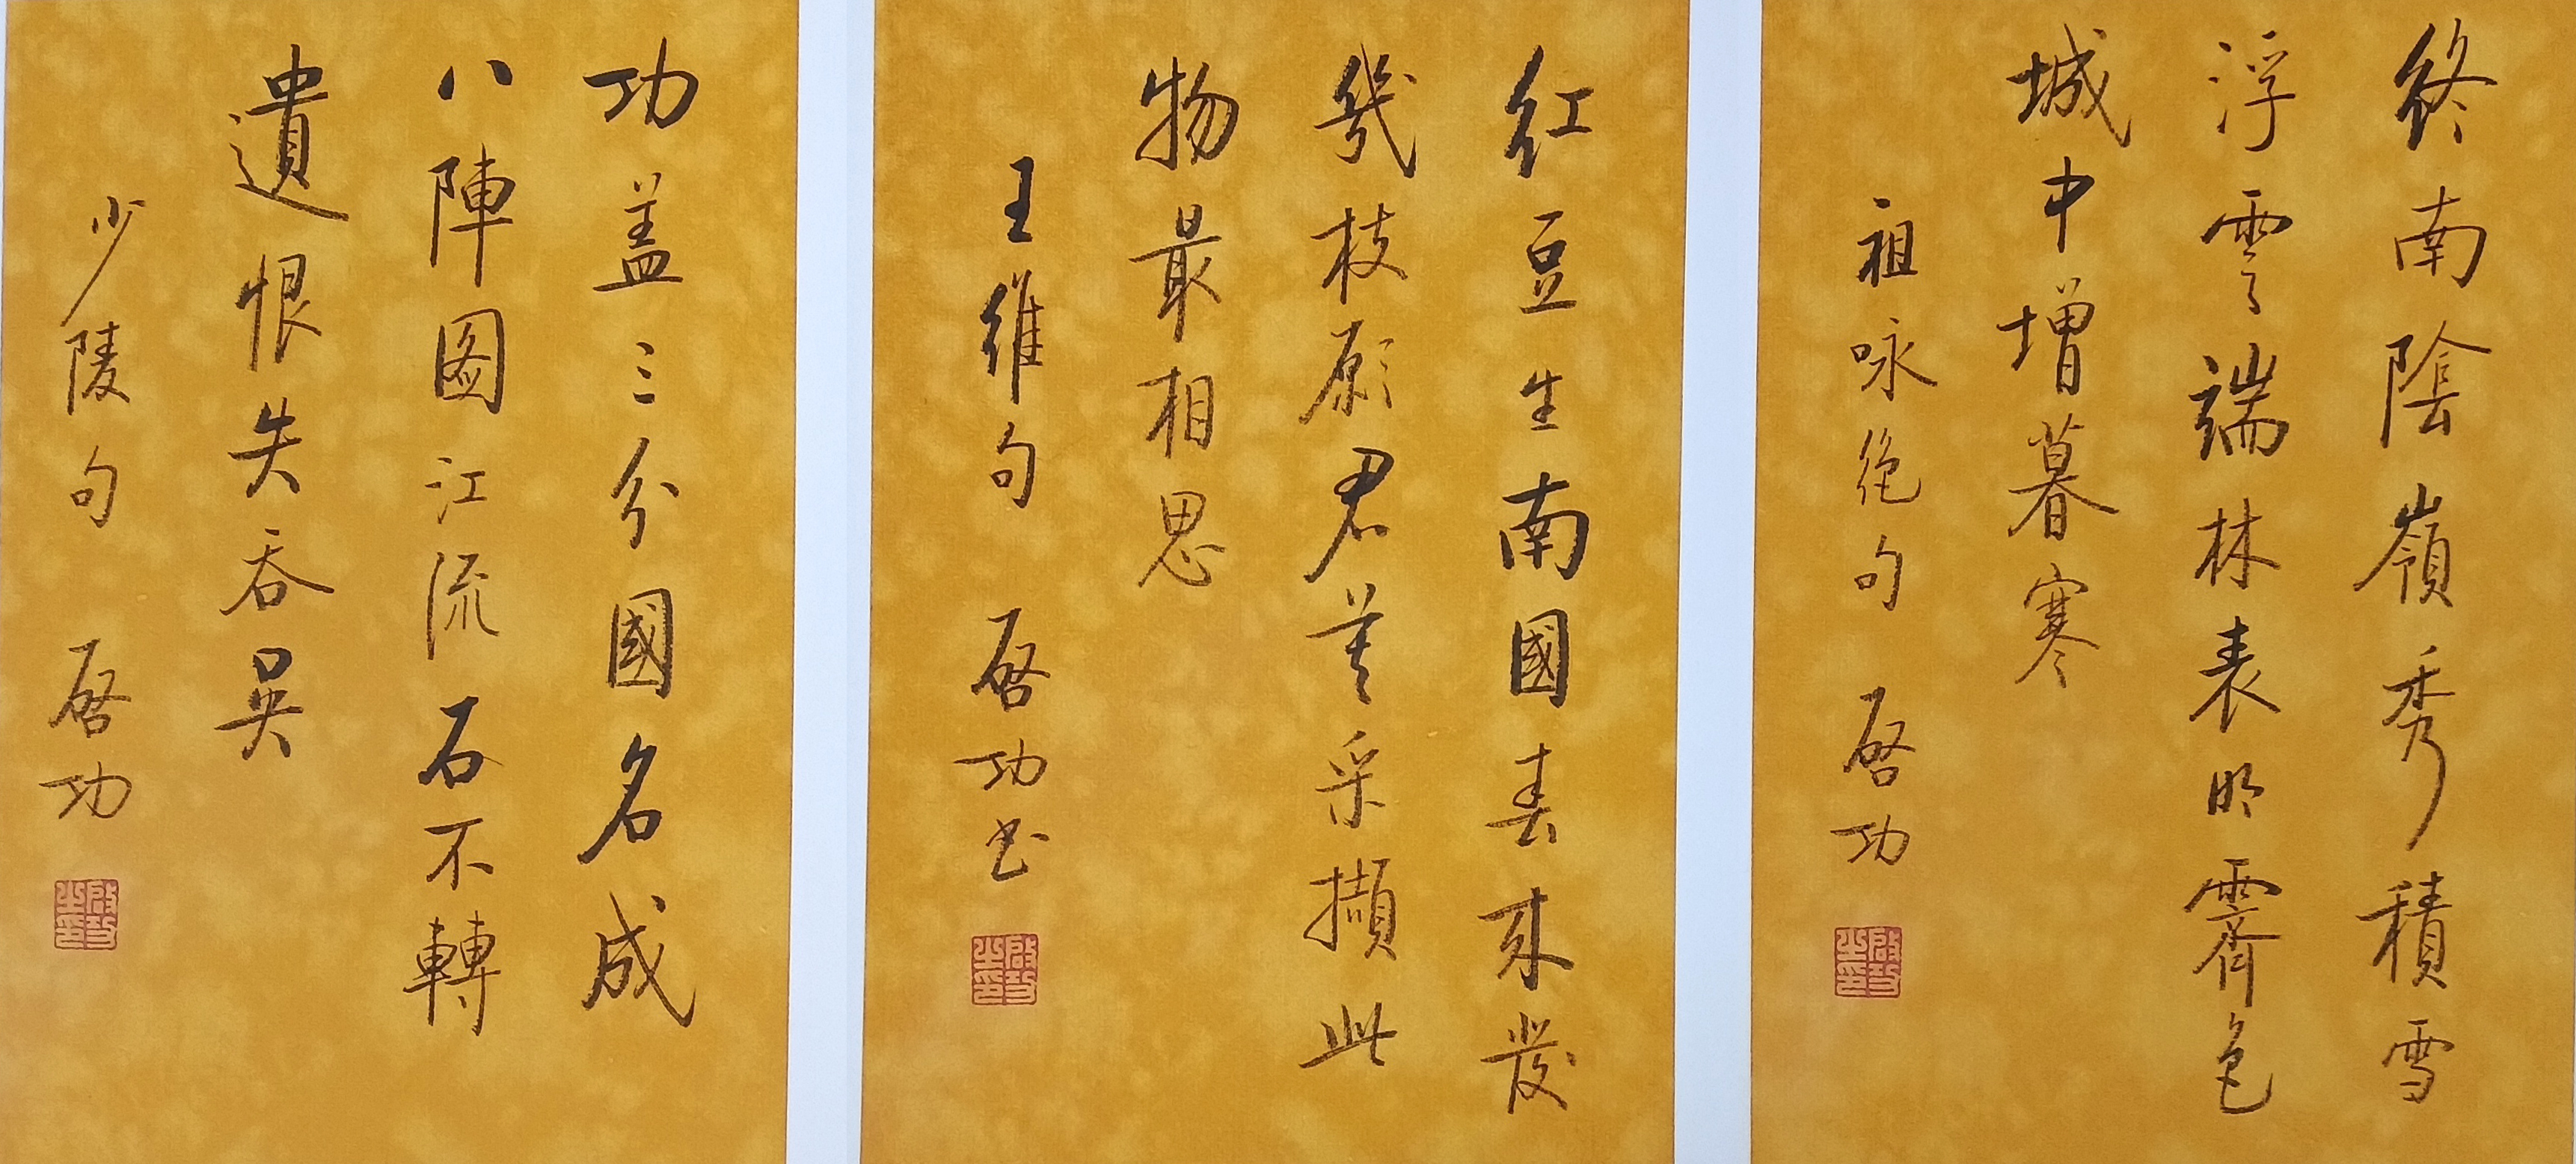 終南陰嶺秀積雪
浮雲端林表明霽色
城中增暮寒
祖咏絶句 啓功
啓功之印
紅豆生南國春來發
幾枝愿君莫采擷此
物最相思
王維句 啓功書
啓功之印
功盖三分國名成
八陣图江流石不轉
遺恨失吞吴
少陵句 啓功
啓功之印